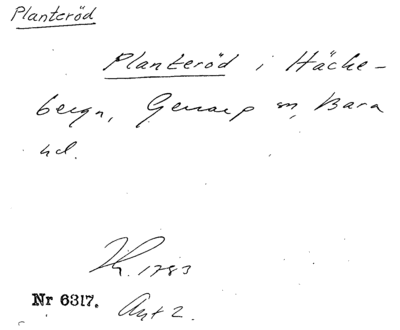 Planteröd
Planteröd i Häcke-
berga, Genarp sn, Bara
hd.
1783
Nr 6317. Avt 2.